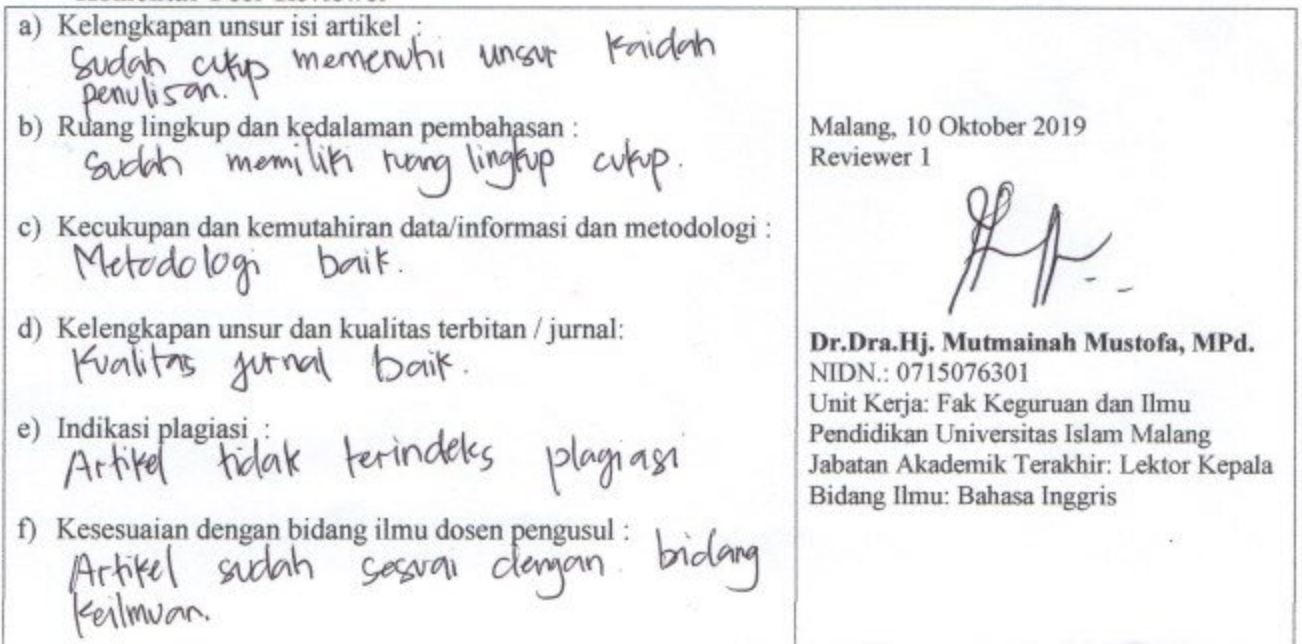 a) Kelengkapan unsur isi artikel :
Sudah cukup memenuhi unsur kaidah
penulisan.
b) Ruang lingkup dan kedalaman pembahasan :
Sudah memiliki ruang lingkup cukup.
c) Kecukupan dan kemutahiran data/informasi dan metodologi :
Metodologi baik.
d) Kelengkapan unsur dan kualitas terbitan / jurnal:
Kualitas jurnal baik.
e) Indikasi plagiasi :
Artikel tidak terindeks plagiasi
f) Kesesuaian dengan bidang ilmu dosen pengusul :
Artikel sudah sesuai dengan bidang
keilmuan.
Malang, 10 Oktober 2019
Reviewer 1
Dr.Dra.Hj. Mutmainah Mustofa, MPd.
NIDN.: 0715076301
Unit Kerja: Fak Keguruan dan Ilmu
Pendidikan Universitas Islam Malang
Jabatan Akademik Terakhir: Lektor Kepala
Bidang Ilmu: Bahasa Inggris